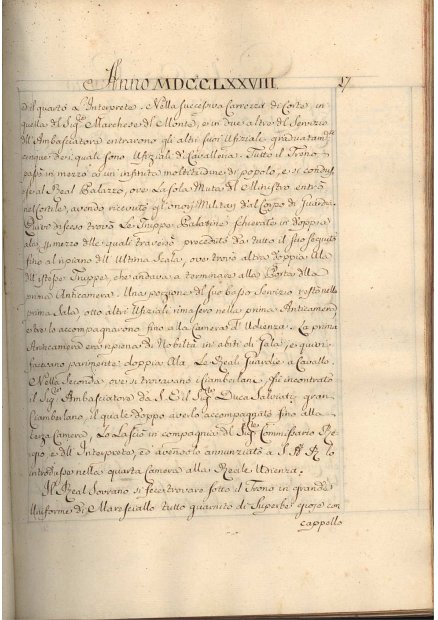 Anno MDCCLXXVIII. 17
ed il quarto a l'Interprete. Nella successiva Carrozza di Corte, in
quella del Sig.re Marchese del Monte, e in due altre del Servizio
dell'Ambasciatore entrarono gli altri suoi Uffiziali graduatam.te
cinque dei quali sono Uffiziali di Cavalleria. Tutto il Treno
passò in mezzo a un'infinita moltitudine di popolo, e si condus-
se al Real Palazzo, ove la sola Muta del Ministro entrò
nel Cortile, avendo ricevuto gli onori Militari dal Corpo di Guardia.
Quivi disceso trovò Le Truppe Palatine schierate in doppia
ala, in mezzo delle quali traversò preceduto da tutto il suo seguito
fino al piano dell'Ultima Scala, ove trovò altra doppia Ala
di istesse Truppe, che andava a terminare alla Porta della
prima Anticamera. Una porzione del suo basso Servizio restò nella
prima Sala, otto altri Uffiziali rimasero nella prima Anticamera
e tre lo accompagnarono fino alla Camera d'Udienza. La prima
Anticamera era ripiena di Nobiltà in abiti di Gala, e quivi
facevano parimente doppia Ala Le Real Guardie a Cavallo.
Nella Seconda ove si trovavano i Ciamberlani, fu incontrato
il Sig.re Ambasciatore da S. E. il Sig.re Duca Salviati gran
Ciamberlano, il quale doppo averlo accompagnato fino alla
terza Camera, Lo Lasciò in compagnia del Sig.re Commissario Re-
gio, e dell'Interprete, ed avendolo annunziato a S. A. R. lo
introdusse nella quarta Camera alla Reale Udienza.
Il Real Sovrano si fece trovare sotto il Trono in grande
Uniforme di Maresciallo tutto guarnito di Superbe gioje con
cappello